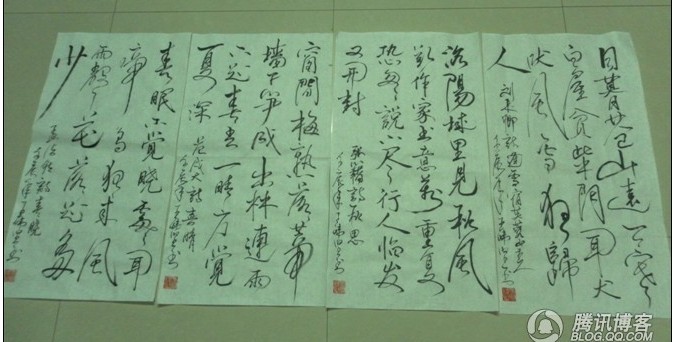 日暮苍山遠天寒
白屋貧柴門闻犬
吠風雪夜歸
人
刘长卿诗逢雪宿芙蓉山主人
洛陽城里見秋風
欲作家书意萬重复
恐匆々說不尽行人临发
又開封
张籍诗秋思
窗間梅熟落蒂
墙下笋成出林連雨
不知春去一晴方覺
夏深
范成大诗喜晴
春眠不覺曉處々闻
啼鳥夜来風
雨聲花落知多
少
孟浩然诗春晓
腾讯博客
BLOG.QQ.COM